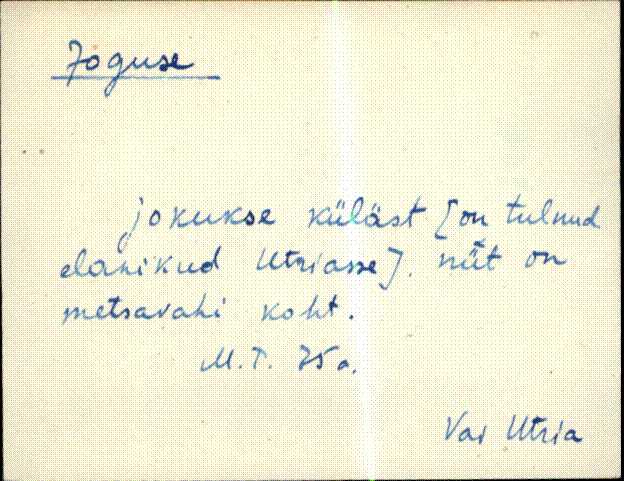 Joguse
jokukse küläst [on tulnud
elanikud Utriasse]. nüt on
metsavahi koht.
M.T. 75 a.
Vai Utria